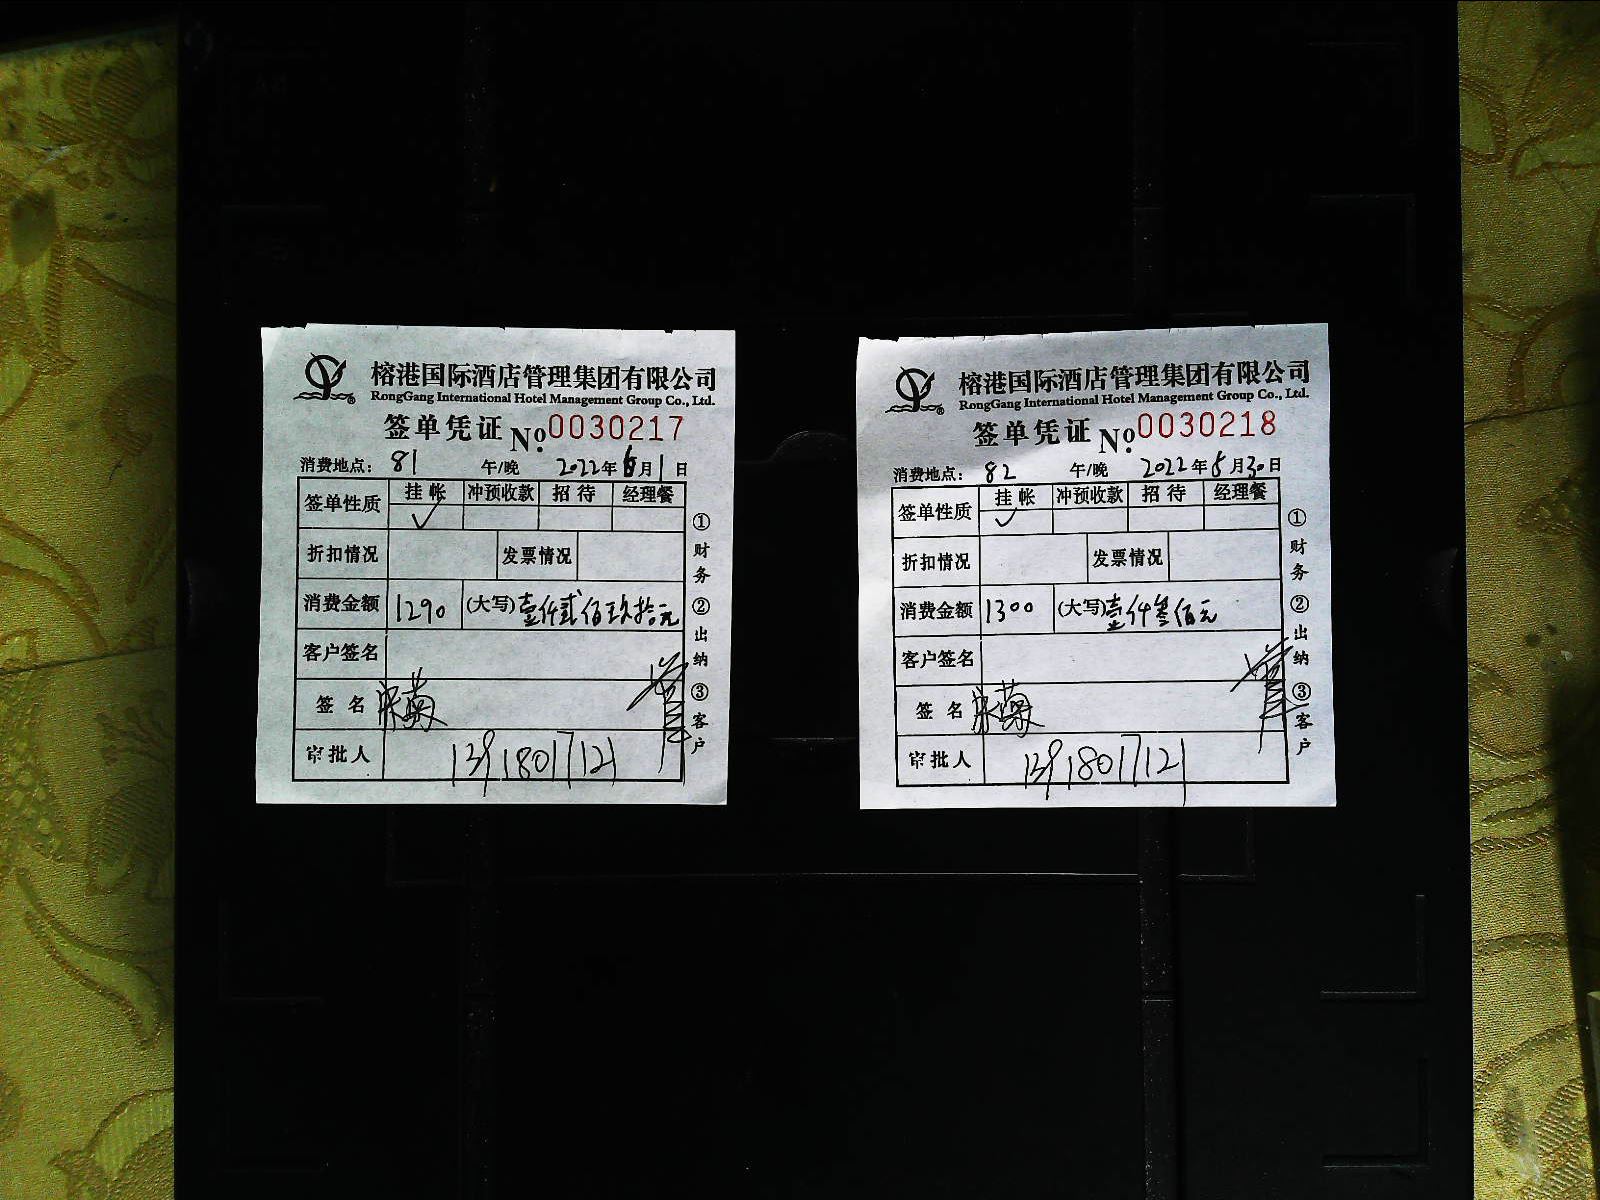 榕港国际酒店管理集团有限公司
RongGang International Hotel Management Group Co., Ltd.
签单凭证 No. 0030217
消费地点: 81 午/晚 2022年6月1日
签单性质 挂帐 冲预收款 招待 经理餐
✓
折扣情况 发票情况
消费金额 1290 (大写)壹仟贰佰玖拾元
客户签名
签名
审批人 13918017121
①财务 ②出纳 ③客户
榕港国际酒店管理集团有限公司
RongGang International Hotel Management Group Co., Ltd.
签单凭证 No. 0030218
消费地点: 82 午/晚 2022年5月30日
签单性质 挂帐 冲预收款 招待 经理餐
✓
折扣情况 发票情况
消费金额 1300 (大写)壹仟叁佰元
客户签名
签名
审批人 13918017121
①财务 ②出纳 ③客户